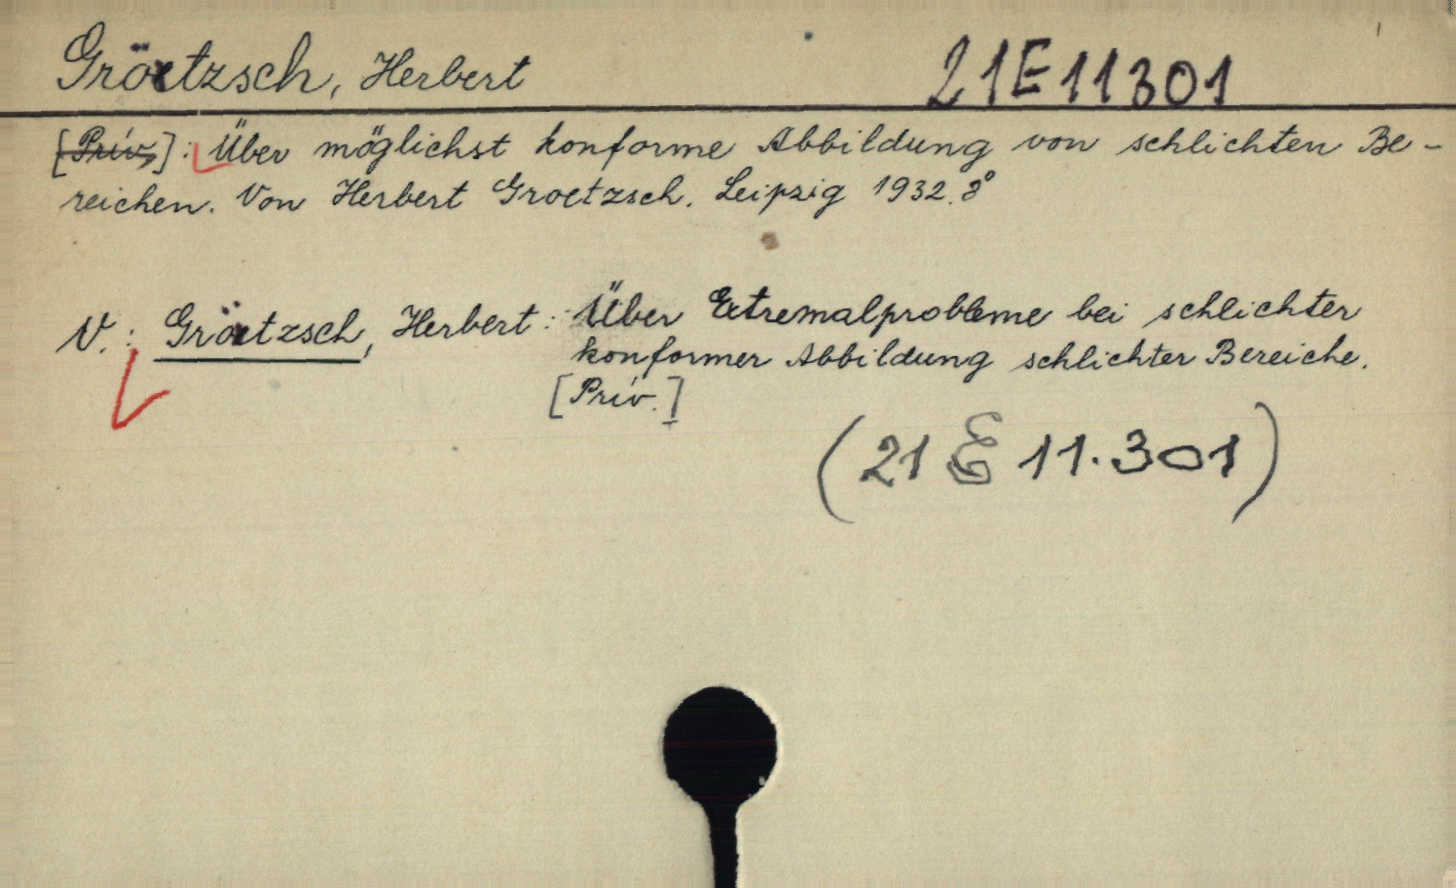 Grötzsch, Herbert 21E11301
[Priv.]: Über möglichst konforme Abbildung von schlichten Be-
reichen. Von Herbert Groetzsch. Leipzig 1932. 8°
V.: Grötzsch, Herbert: Über Extremalprobleme bei schlichter
konformer Abbildung schlichter Bereiche.
[Priv.]
(21 E 11.301)